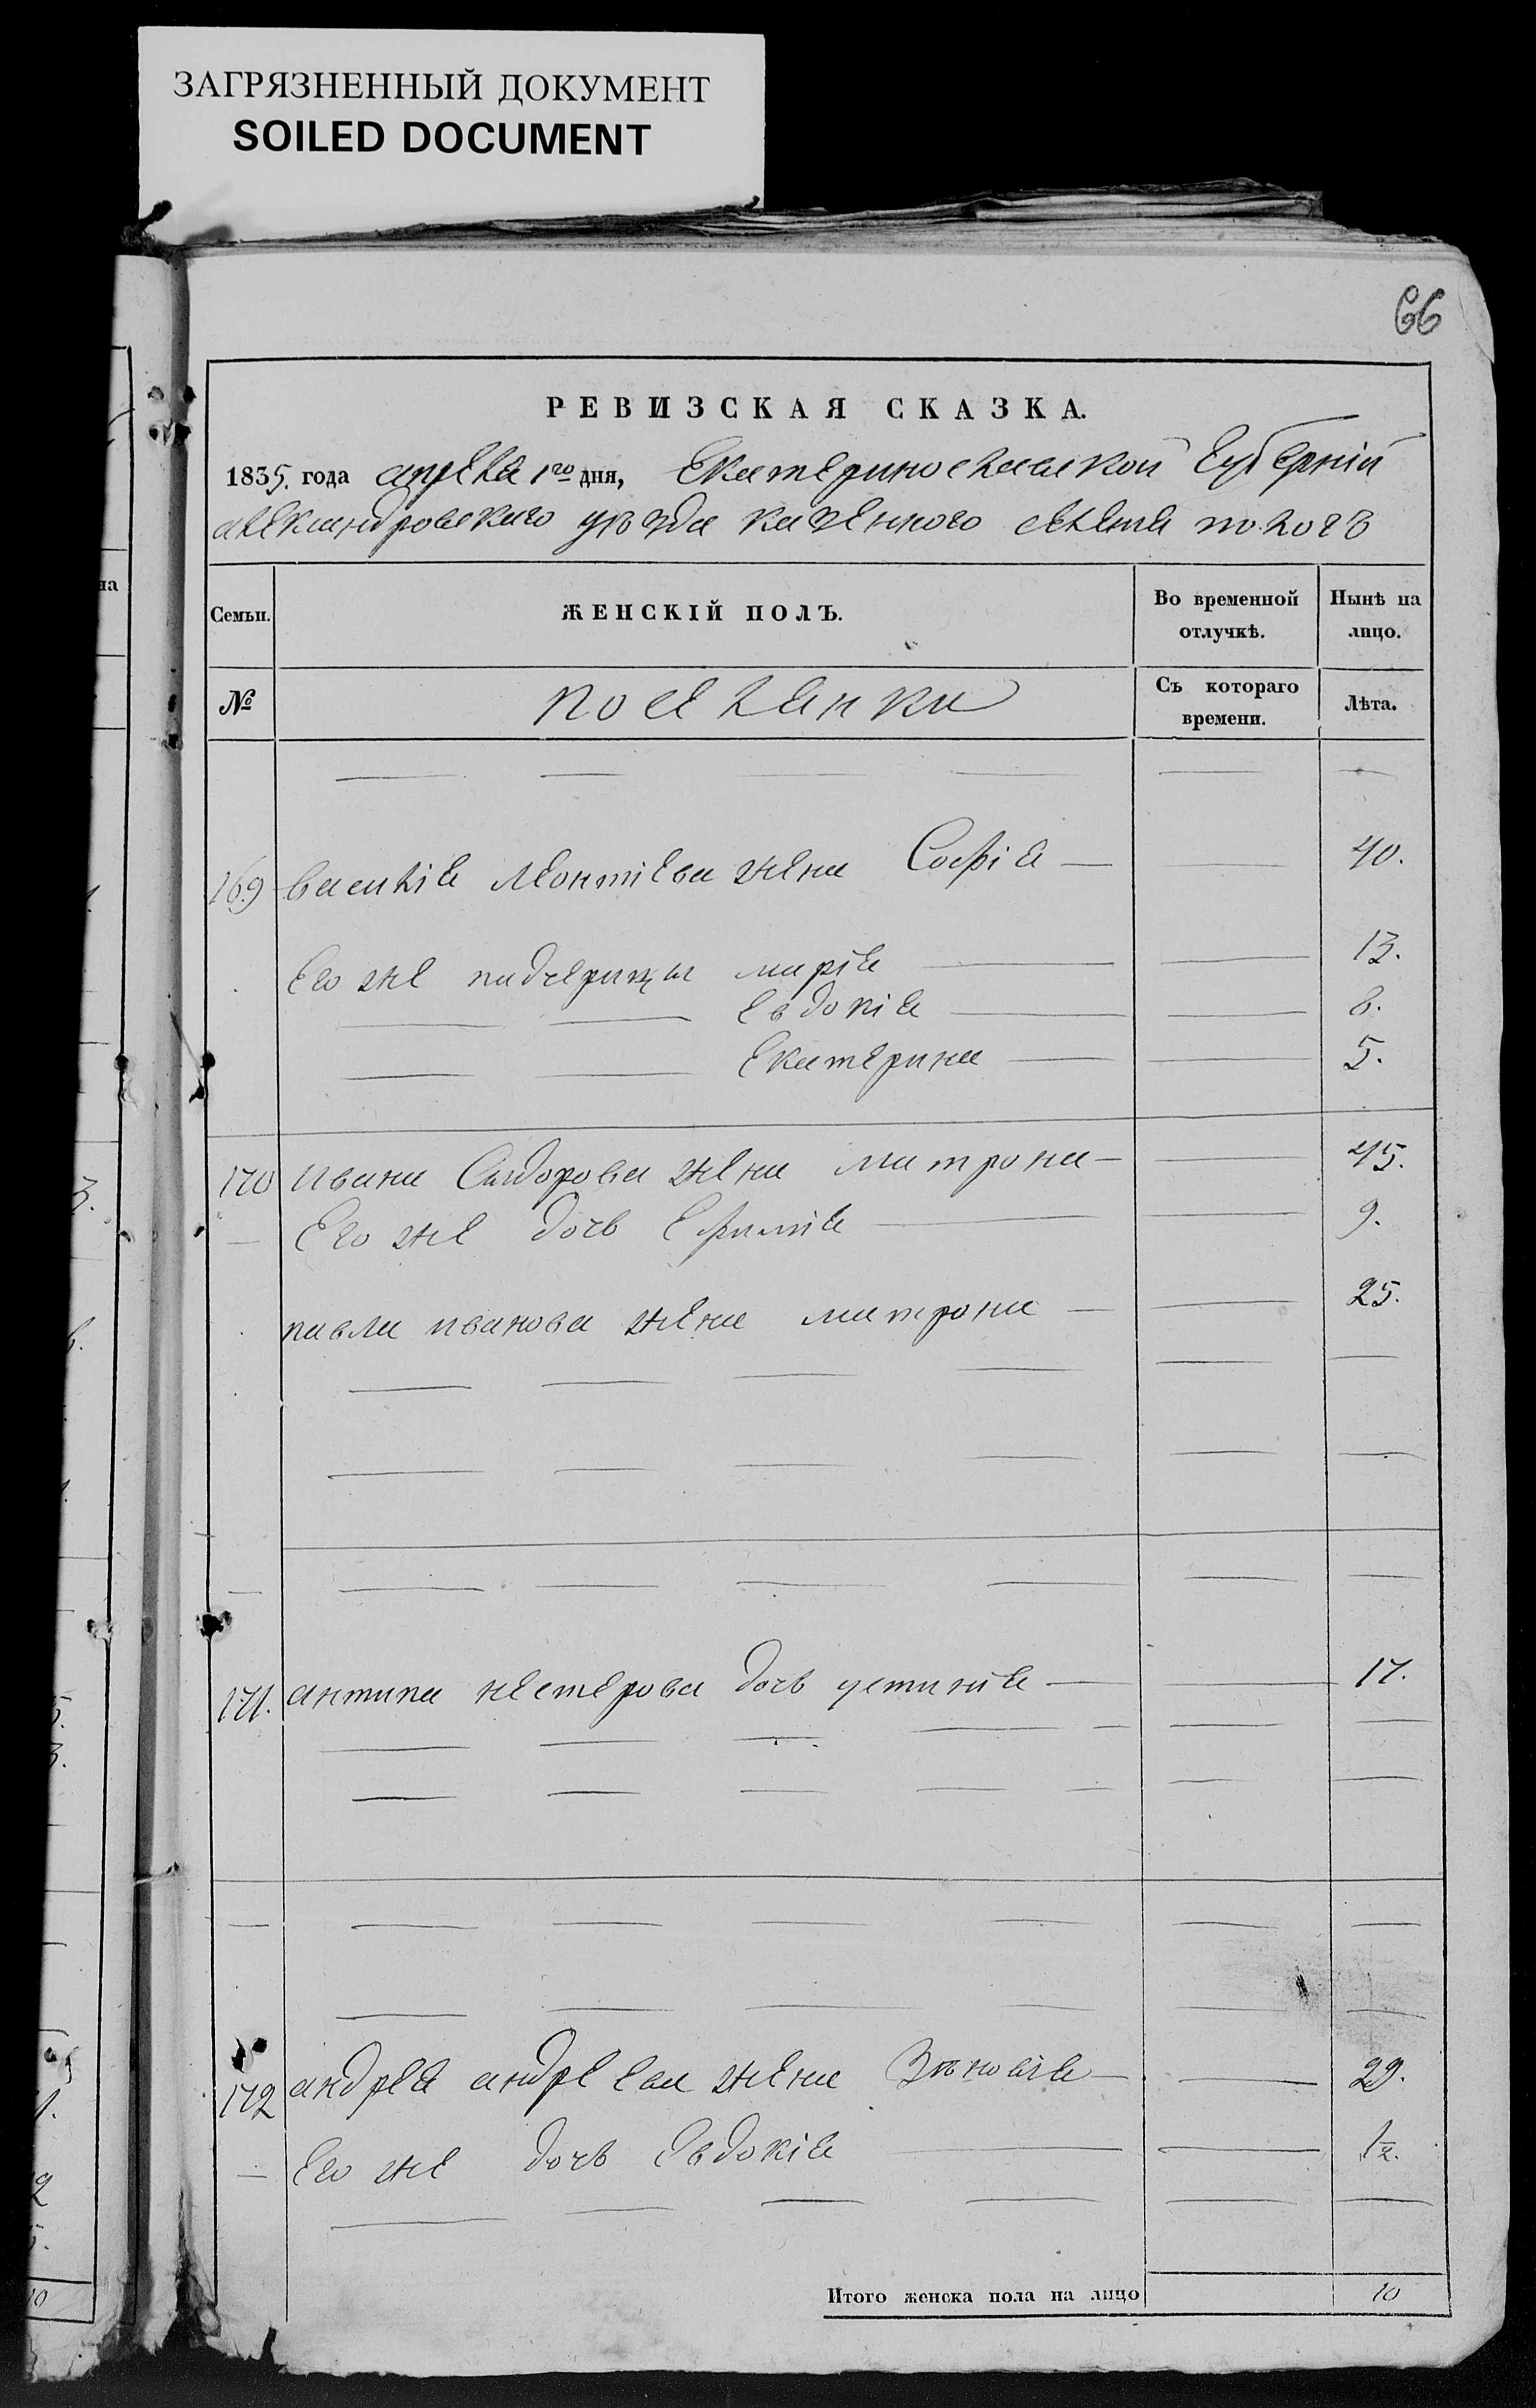 ЗАГРЯЗНЕННЫЙ ДОКУМЕНТ
SOILED DOCUMENT
66
РЕВИЗСКАЯ СКАЗКА.
1835. года апреля 1го дня, Екатеринославской Губерній
александровского уѣзда казенного селенія токъ
Семьи. ЖЕНСКІЙ ПОЛЪ. Во временной отлучкѣ. Нынѣ на лицо.
№ поселянки Съ котораго времени. Лѣта.
169 василія Леонтіева жена Софія — 40.
Его же падчерицы марія — 13.
Евдокія — 8.
Екатерина — 5.
170 ивана Сидорова жена матрона — 45.
Его же дочь Ефимія — 9.
павла иванова жена матрона — 25.
171. антипа нестерова дочь устинія — 17.
172 андрея андреева жена Зѣновія — 29.
Его же дочь Евдокія — 1/2.
Итого женска пола на лицо 10